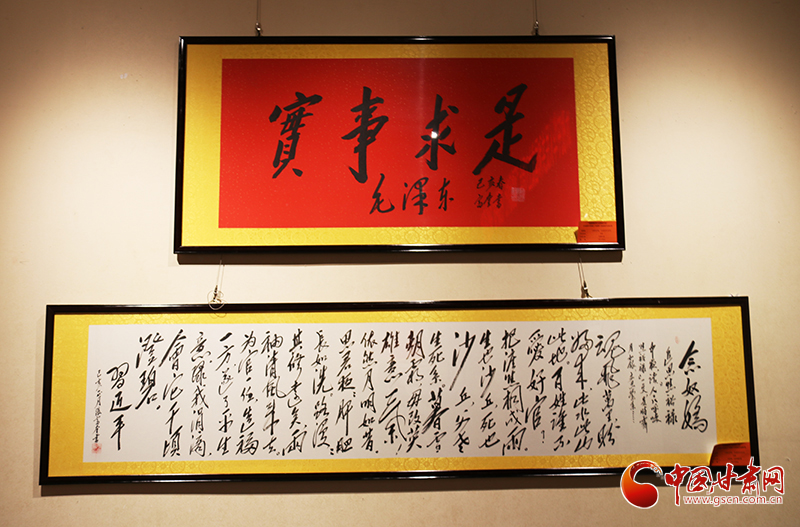 實事求是
毛澤东
己亥春
念奴娇
追思焦裕禄
魂飞萬里盼
归来此水此山
此地百姓谁不
爱好官?
把泪焦桐成雨
生也沙丘死也
沙丘父老
生死系暮雪
朝霜毋改英
雄意气!
依然月明如昔
思君夜夜肝胆
长如洗路漫漫
其修远矣两
袖清风来去
为官一任造福
一方遂了平生
意绿我涓滴
會它千顷
澄碧
習近平
中国甘肃网
www.gscn.com.cn